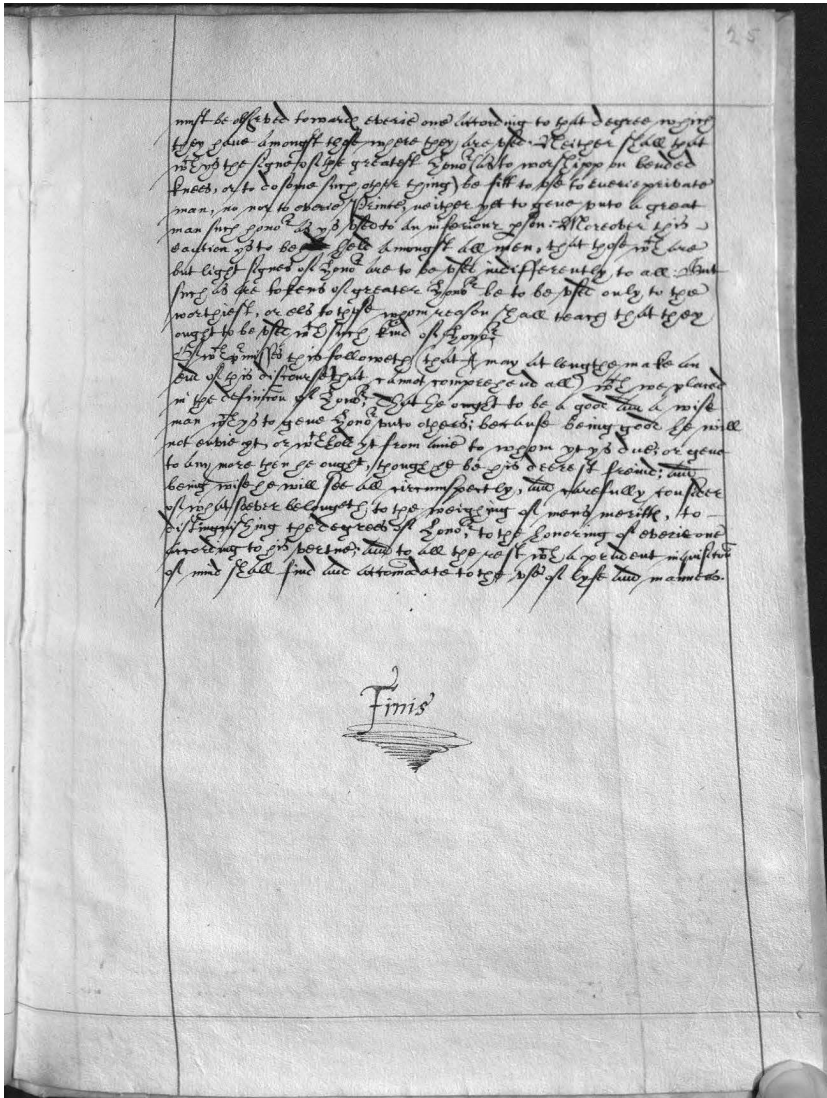 25
must be observed towards everie one according to that degree which
they have amongst those where they are used. Neither shall that
wch ys the signe of the greatest honor (as to worshipp on bended
knees, or to do some such other thing) be fitt to use to everie private
man, no nor to everie Prince, neither yet to geve unto a great
man such honor as ys used to an inferiour pson. Moreover this
caution ys to be held amongst all men, that those wch are
but light signes of honor are to be used indifferently, to all. But
such as are tokens of greater honor be to be used only to the
worthiest, or els to those whom reason shall teach that they
ought to be used wth such kind of honor.
Of wch pmisses this followeth (that I may at lengthe make an
end of this discourse that cannot comprehend all) wch we placed
in the definition of honor, That he ought to be a good and a wise
man wch ys to geve honor unto others; because being good he will
not envie yt, or wthhold yt from anie to whom yt ys due; or geve
to any more then he ought, though he be his deerest freind; and
being wise he will see all circumspectly, and carefully consider
of whatsoever belongeth to the weighing of mens meritts, to
distinguishing the degrees of honor, to the honoring of everie one
according to his vertue; and to all the rest wch a prudent inquisition
of mind shall find and accomodate to the use of lyfe and manners.
Finis